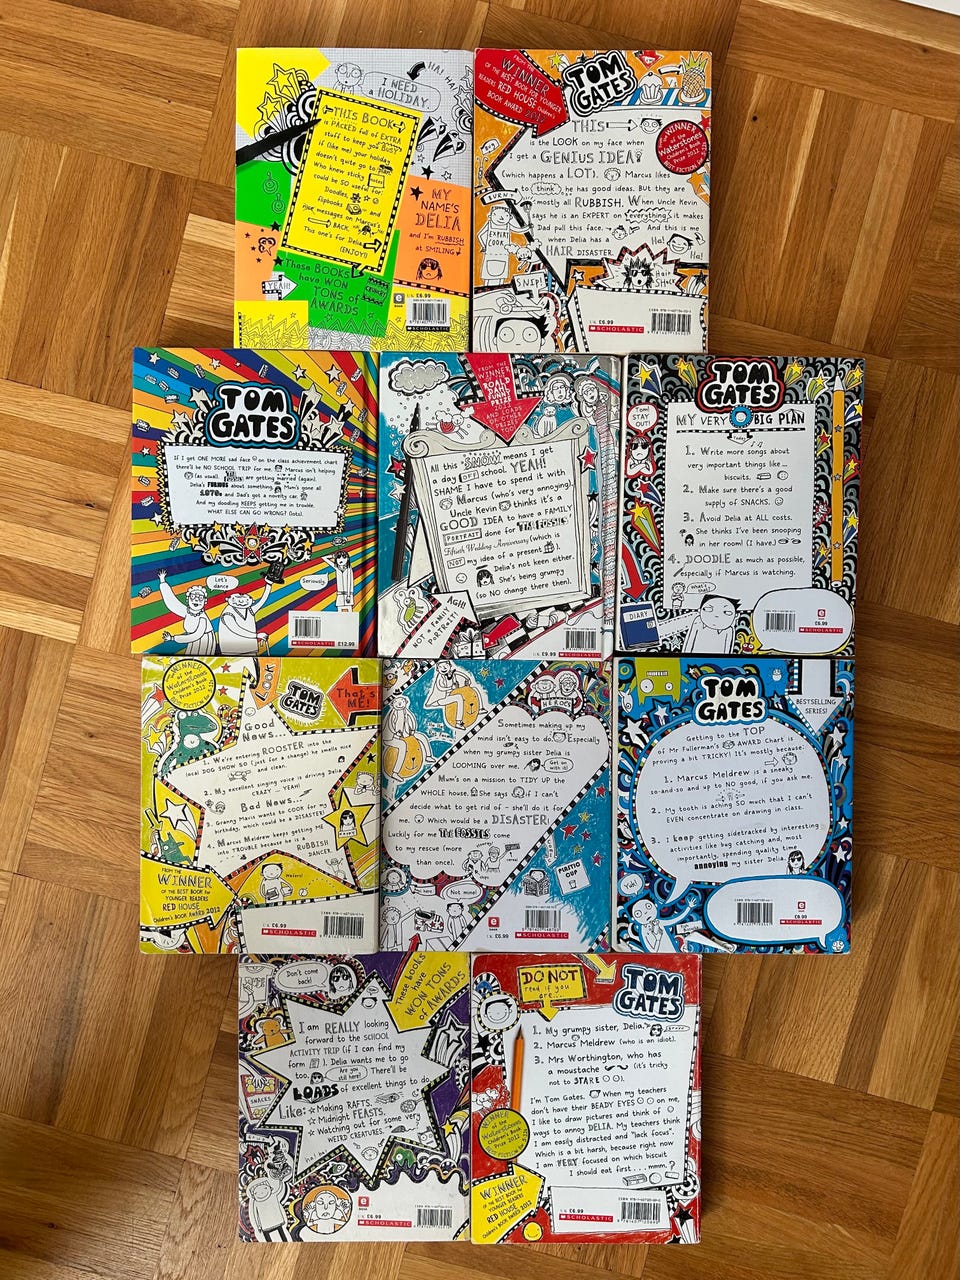 I NEED
a HOLIDAY
HA! HA!
THIS BOOK
is PACKED full of EXTRA
stuff to keep you BUSY
if (like me) your holiday
doesn't quite go to PLAN
Who knew sticky notes
could be SO useful for:
Doodles,
flipbooks and
nice messages on Marcus's
BACK.
This one's for Delia
(ENJOY!)
MY
NAME'S
DELIA
and I'm RUBBISH
at SMILING
These BOOKS
have WON
TONS of
AWARDS
YEAH!
£6.99
SCHOLASTIC
FROM THE
WINNER
OF THE BEST BOOK FOR YOUNGER
READERS RED HOUSE Children's
BOOK AWARD 2012
TOM
GATES
WINNER
of the
Waterstones
Children's Book
Prize 2012
BEST FICTION
THIS
is the LOOK on my face when
I get a GENIUS IDEA!
(which happens a LOT). Marcus likes
to think he has good ideas. BUT they are
mostly ALL RUBBISH. When Uncle Kevin
says he is an EXPERT on everything, it makes
Dad pull this face. And this is me
when Delia has a
HAIR DISASTER.
Ha!
Ha!
BURNT
EXPERT
COOK
SNIP!
Hair
SHOCK
£6.99
SCHOLASTIC
TOM
GATES
If I get ONE MORE sad face on the class achievement chart
there'll be NO SCHOOL TRIP for me. Marcus isn't helping
(as usual). THE FOSSILS are getting married (again).
Delia's FURIOUS about something. Mum's gone all
1970s and Dad's got a novelty car.
And my doodling KEEPS getting me in trouble.
WHAT ELSE CAN GO WRONG? (lots).
Let's
dance
Seriously.
SCHOLASTIC £12.99
FROM THE
WINNER
OF THE
ROALD
DAHL
FUNNY
PRIZE
2011
AND LOADS
OF OTHER
PRIZES
TOO!
All this SNOW means I get
a day OFF school YEAH!
SHAME I have to spend it with
Marcus (who's very annoying).
Uncle Kevin thinks it's a
GOOD IDEA to have a FAMILY
PORTRAIT done for THE FOSSILS
Fiftieth Wedding Anniversary (which is
NOT my idea of a present).
Delia's not keen either.
She's being grumpy
(so NO change there then).
AGH!
NOT A FAMILY
PORTRAIT!
£9.99
SCHOLASTIC
TOM
GATES
MY VERY BIG PLAN
Today
Tom!
STAY
OUT!
1. Write more songs about
very important things like...
biscuits.
2. Make sure there's a good
supply of SNACKS.
3. Avoid Delia at ALL costs.
She thinks I've been SNOOPING
in her room! (I have)
4. DOODLE as much as possible,
especially if Marcus is watching.
What's
that?
DIARY
e
book
£6.99
SCHOLASTIC
WINNER
of the
Waterstones
Children's Book
Prize 2012
BEST FICTION
LOOK
TOM
GATES
That's
ME!
Good
News...
1. We're entering ROOSTER into the
local DOG SHOW SO (just for a change) he smells nice
and clean.
2. My excellent singing voice is driving Delia
CRAZY - YEAH!
Bad News...
3. Granny Mavis wants to COOK for my
birthday, which could be a DISASTER!
4. Marcus Meldrew keeps getting ME
into TROUBLE because he is a
RUBBISH
DANCER
Wafers!
FROM THE
WINNER
OF THE BEST BOOK FOR
YOUNGER READERS
RED HOUSE
Children's BOOK AWARD 2012
SCHOLASTIC
HEROES
Sometimes making up my
mind isn't easy to do. Especially
when my grumpy sister Delia is
LOOMING over me.
Get on
with it!
Mum's on a mission to TIDY UP the
WHOLE house. She says if I can't
decide what to get rid of - she'll do it for
me. Which would be a DISASTER!
Luckily for me THE FOSSILS come
to my rescue (more
than once).
Mum's
cups
Not mine!
PLASTIC
CUP
e
book
£6.99
SCHOLASTIC
TOM
GATES
BESTSELLING
SERIES!
Getting to the TOP
of Mr Fullerman's AWARD Chart is
proving a bit TRICKY! It's mostly because:
1. Marcus Meldrew is a sneaky
so-and-so and up to NO good, if you ask me.
2. My tooth is aching SO much that I can't
EVEN concentrate on drawing in class.
3. I keep getting sidetracked by interesting
activities like bug catching and, most
importantly, spending quality time
annoying my sister Delia.
Yuk!
e
book
£6.99
SCHOLASTIC
Don't come
back!
These books
have
WON TONS
of AWARDS
I am REALLY looking
forward to the SCHOOL
ACTIVITY TRIP (if I can find my
form). Delia wants me to go
too. Are you
still here? There'll be
LOADS of excellent things to do.
Like: Making RAFTS.
Midnight FEASTS.
Watching out for some very
WEIRD CREATURES.
SNACKS
e
book
£6.99
SCHOLASTIC
DO NOT
read if you
are...
TOM
GATES
1. My grumpy sister, Delia.
2. Marcus Meldrew (who is an idiot).
3. Mrs Worthington, who has
a moustache (it's tricky
not to STARE).
I'm Tom Gates. When my teachers
don't have their BEADY EYES on me,
I like to draw pictures and think of
ways to annoy DELIA. My teachers think
I am easily distracted and "lack focus".
Which is a bit harsh, because right now
I am VERY focused on which biscuit
I should eat first... mmm.?
WINNER
of the
Waterstones
Children's Book
Prize 2012
BEST FICTION
WINNER
OF THE BEST BOOK FOR
YOUNGER READERS
RED HOUSE
Children's BOOK AWARD 2012
£6.99
SCHOLASTIC